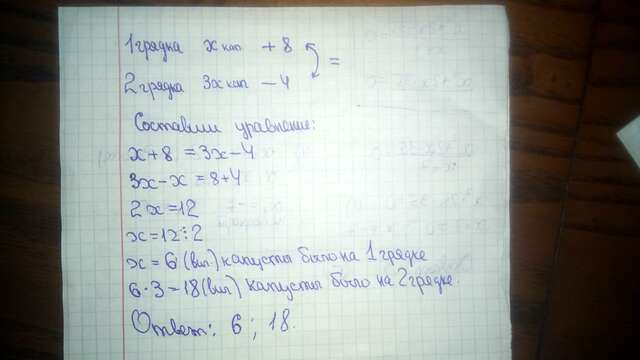 1 грядка х кап + 8
=
2 грядка 3х кап — 4
Составим уравнение:
х + 8 = 3х — 4
3х — х = 8 + 4
2х = 12
х = 12 : 2
х = 6 (вил) капусты было на 1 грядке
6 · 3 = 18 (вил) капусты было на 2 грядке.
Ответ: 6 ; 18.